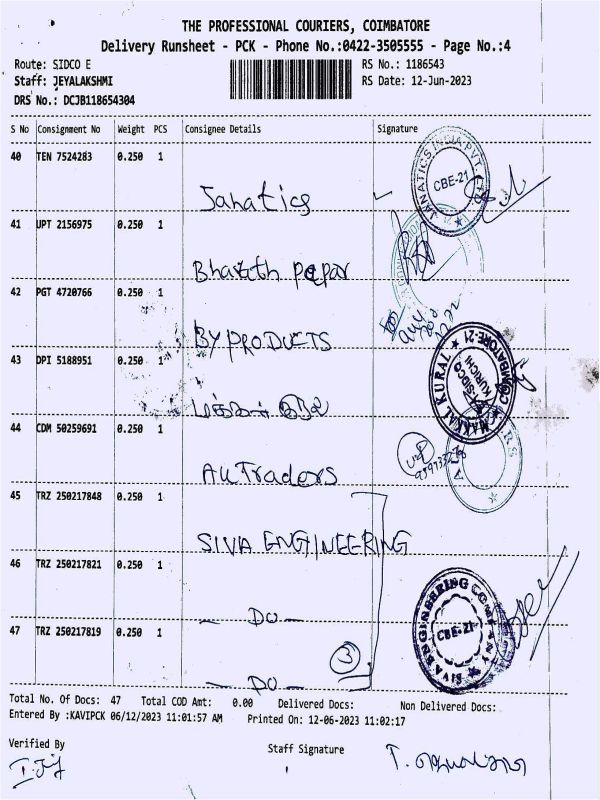 THE PROFESSIONAL COURIERS, COIMBATORE
Delivery Runsheet - PCK - Phone No.:0422-3505555 - Page No.:4
Route: SIDCO E RS No.: 1186543
Staff: JEYALAKSHMI RS Date: 12-Jun-2023
DRS No.: DCJB118654304
S No Consignment No Weight PCS Consignee Details Signature
40 TEN 7524283 0.250 1
Janatics
JANATICS INDIA PVT. LTD
CBE-21
41 UPT 2156975 0.250 1
Bharath papar
42 PGT 4720766 0.250 1
BY PRODUCTS
43 DPI 5188951 0.250 1
மக்கள் குரல்
MAKKAL KURAL
SIDCO
KURICHI
COIMBATORE-21
44 CDM 50259691 0.250 1
AU Traders
45 TRZ 250217848 0.250 1
SIVA ENGINEERING
46 TRZ 250217821 0.250 1
— DO —
47 TRZ 250217819 0.250 1
— DO —
3
SIVA ENGINEERING COMPANY
CBE-21
Total No. Of Docs: 47 Total COD Amt: 0.00 Delivered Docs: Non Delivered Docs:
Entered By :KAVIPCK 06/12/2023 11:01:57 AM Printed On: 12-06-2023 11:02:17
Verified By Staff Signature